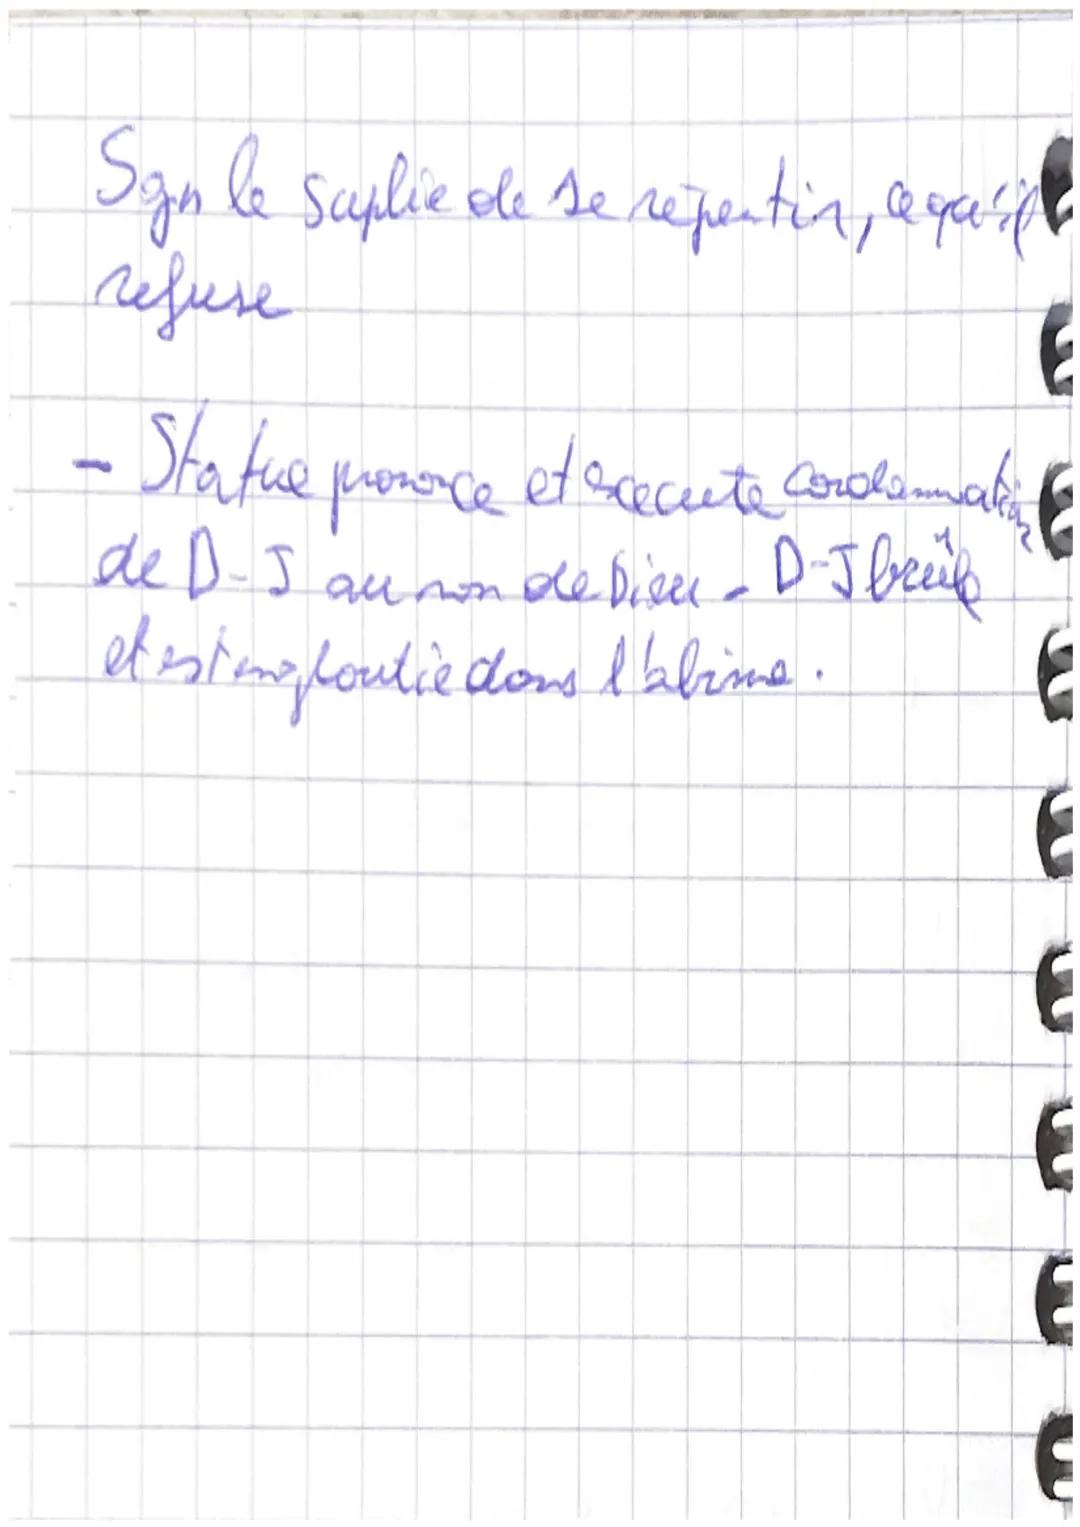 Sgn le suplie de se repentir, ce qu'il
refuse
- Statue prononce et execute condamnation
de D-J au nom de Dieu - D-J brûle
et est engloutie dans l'abime.